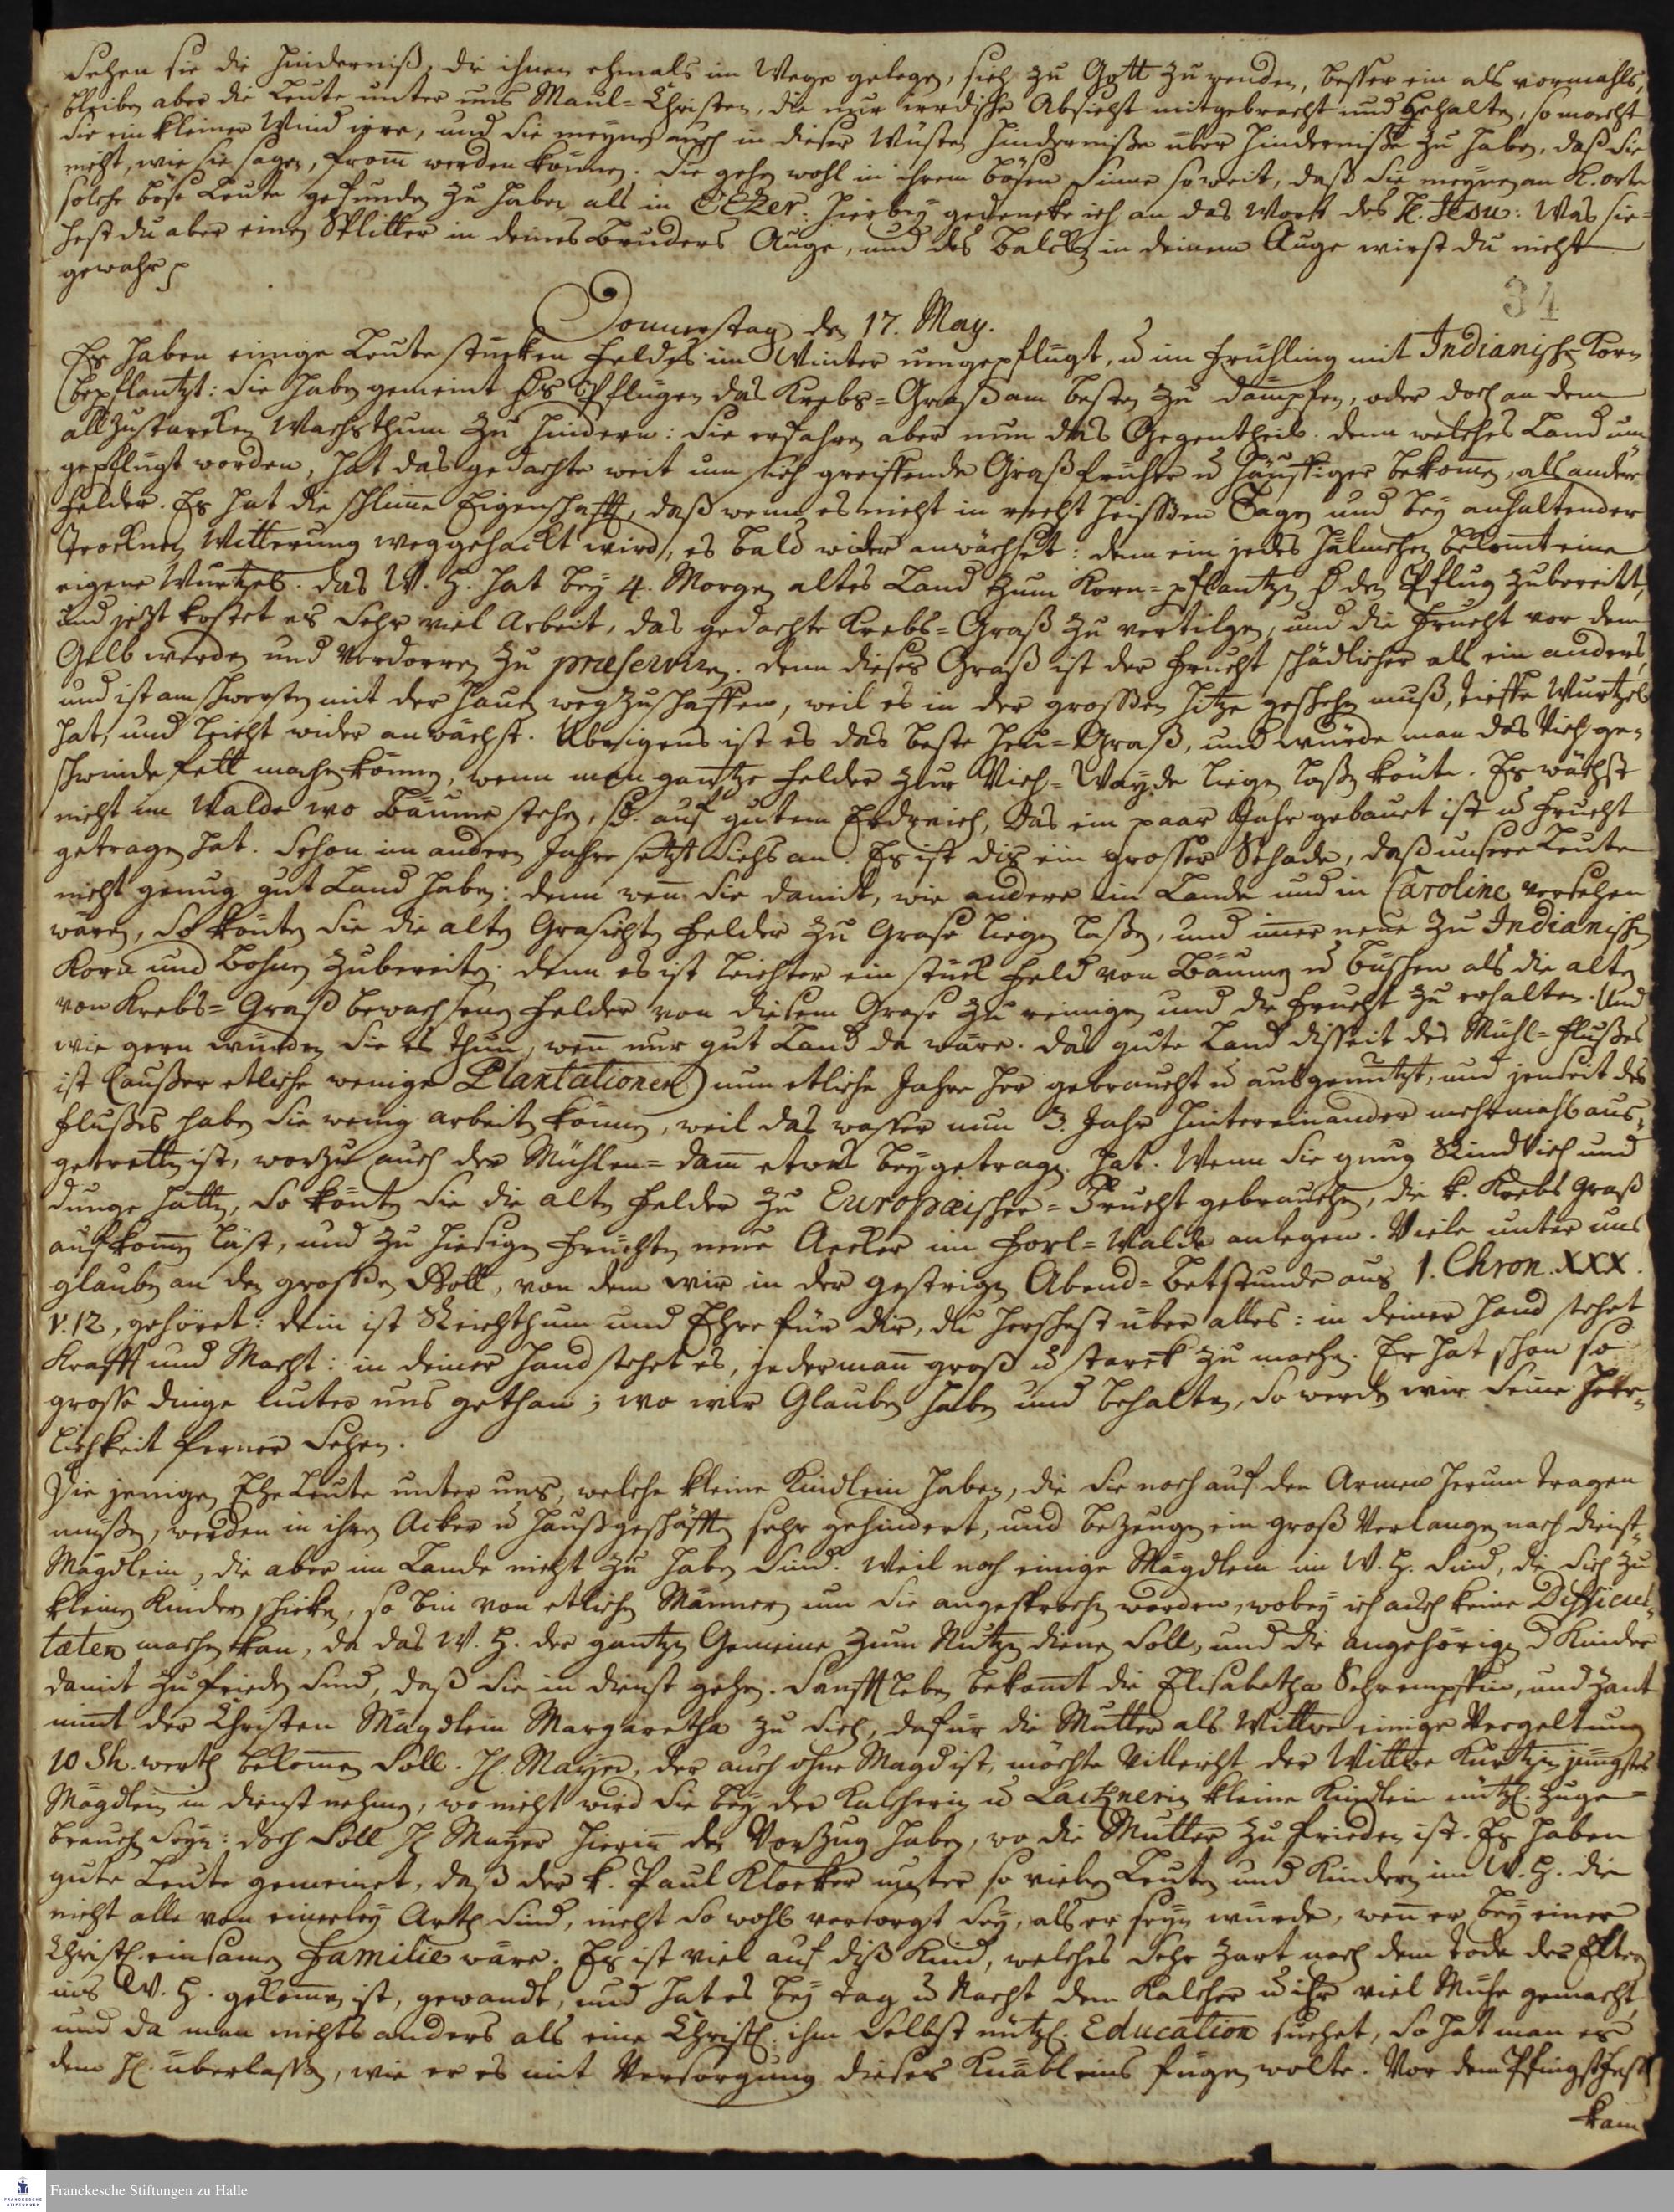 sehen sie die Hinderniß, die ihnen ehmals im Wege gelegen, sich zu Gott zu wenden, besser ein als vormahls,
bleiben aber die Leute unter uns Maul-Christen, die nur irrdische Absicht mitgebracht und behalten, so macht
sie ein kleiner Wind irre, und sie meynen auch in dieser Wüsten Hinderniße über Hinderniße zu haben, daß sie
nicht, wie sie sagen, from̄ werden können. Sie gehen wohl in ihrem bösen Sinne so weit, daß sie meynen an K. orte
solche böse Leute gefunden zu haben als in EbEzer. Hierbey gedencke ich an das Wort des H. Jesu: Was sie-
hest du aber einen Splitter in deines Bruders Auge, und des Balcken in deinem Auge wirst du nicht
gewahr
34
Donnerstag den 17. May.
Es haben einige Leute stücken Feldes im Winter umgepflügt, u im Frühling mit Indianisch Korn
bepflantzt: Sie haben gemeint Pflügen das Krebs-Graß am besten zu dämpfen, oder doch an dem
allzustarcken Wachsthum zu hindern: Sie erfahren aber nun das Gegentheil. denn welches Land um
gepflügt worden, hat das gedachte weit um sich greiffende Graß früher u häuffiger bekom̄en, als andere
Felder. Es hat die schlim̄e Eigenschafft, daß wenn es nicht in recht heissen Tagen und bey anhaltender
trocknen Witterung weggehackt wird, es bald wider anwächset: denn ein jedes Hälmchen bekom̄t eine
eigene Wurtzel. Das W. H. hat bey 4. Morgen altes Land zum Korn-pflantzen den Pflug zubereitet,
und jetzt kostet es sehr viel Arbeit, das gedachte Krebs-Graß zu vertilgen, und die Frucht vor dem
Gelb werden und Verdorren zu præserviren. denn dieses Graß ist der Frucht schädlicher als ein anders,
und ist am schwersten mit der Hauen wegzuschaffen, weil es in der grossen Hitze geschehen muß, tieffe Wurtzel
hat, und leicht wider anwächst. Übrigens ist es das beste Heu-Graß, und würde man das Vieh ge-
schwinde fett machen können, wenn man gantze Felder zur Vieh-Wayde liegen laßen könte. Es wächst
nicht im Walde wo Bäume stehen, sd. auf gutem Erdreich, das ein paar Jahr gebauet ist u Frucht
getragen hat. Schon im andern Jahre setzt sichs an. Es ist dis ein grosser Schade, daß unsere Leute
nicht genug gut Land haben: denn wen̄ sie damit, wie andere im Lande und in Caroline versehen
wären, so könten sie die alten Grasichten Felder zu Grase liegen laßen, und im̄er neue zu Indianischen
Korn und Bohnen zubereiten. denn es ist leichter ein stück Feld von Bäumen u Büschen als die alten
von Krebs-Graß bewachsenen Felder von diesem Grase zu reinigen und die Frucht zu erhalten. Und
wie gern würden sie es thun, wen̄ nur gut Land da wäre. das gute Land disseit des Mühl-Flußes
ist (ausser etliche wenige Plantationen) nun etliche Jahre her gebraucht u ausgenützt, und jenseit des
Flußes haben sie wenig arbeiten können, weil das wasser nun 3. Jahr hintereinander mehrmahls aus-
getretten ist, worzu auch der Mühlen-dam̄ etwas beygetragen hat. Wenn sie gnug Rindvieh und
dunge hätten, so könten sie die alten Felder zu Europæischer-Frucht gebrauchen, die k. Krebs Graß
aufkom̄en läst, und zu hiesigen Früchten neue Aecker im Forl-Walde anlegen. Viele unter uns
glauben an den grossen Gott, von dem wir in der gestrigen Abend-Betstunde aus 1. Chron. XXX.
v. 12, gehöret: dein ist Reichthum und Ehre für dir, du herschest über alles: in deiner Hand stehet
Krafft und Macht: in deiner Hand stehet es, jederman̄ groß u starck zu machen. Er hat schon so
grosse dinge unter uns gethan; wo wir Glauben haben und behalten, so werden wir seine Herr-
lichkeit ferner sehen.
Die jenigen Ehe Leute unter uns, welche kleine Kindlein haben, die sie noch auf den Armen herum tragen
müßen, werden in ihren Acker u Haußgeschäfften sehr gehindert, und bezeugen ein groß Verlangen nach Dienst-
Mägdlein, die aber im Lande nicht zu haben sind. Weil noch einige Mägdlein im W. H. sind, die sich zu
kleinen Kindern schicken, so bin von etlichen Männern um sie angesprochen worden, wobey ich auch keine Difficul-
tæten machen kan, da das W. H. der gantzen Gemeine zum Nutzen dienen soll, und die angehörigen d Kinder
damit zufrieden sind, daß sie in dienst gehen. Sanfftleben bekom̄t die Elisabetha Schrempffin, und Zant
nim̄t der Christen Mägdlein Margaretha zu sich, dafür die Mutter als Wittwe einige Vergeltung
10 Sh. werth bekom̄en soll. H. Mayer, der auch ohne Magd ist, möchte villeicht der Wittwe Kurtzin jüngstes
Mägdlein in dienst nehmen, wo nicht wird sie bey der Kalcherin u Lacknerin kleine Kindlein nützl. zuge-
brauchen seyn: doch soll H Mayer hierin̄ den Vorzug haben, wo die Mutter zu frieden ist. Es haben
gute Leute gemeinet, daß der k. Paul Klocker unter so vielen Leuten und Kindern im W. H. die
nicht alle von einerley Arth sind, nicht so wohl versorgt sey, als er seyn würde, wen̄ er bey einer
Christl. einsamen Familie wäre. Es ist viel auf diß Kind, welches sehr zart nach dem Tode der Eltern
ins W. H. gekom̄en ist, gewandt, und hat es bey tag u Nacht dem Kalcher u ihr viel Mühe gemacht,
und da man nichts anders als eine Christl. ihm selbst nützl. Education suchet, so hat man es
dem H. überlassen, wie er es mit Versorgung dieses Knäbleins fügen wolte. Vor dem Pfingstfest
kam
Franckesche Stiftungen zu Halle